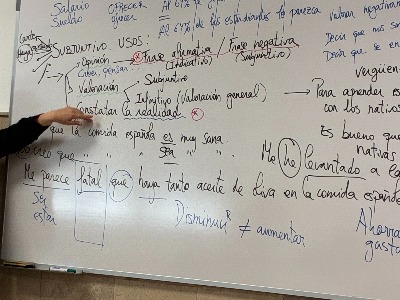 Salario OFRECER = Al 67% de
Sueldo = El 67% de los estudiantes le parezca
Valorar negativam
SUBJUNTIVO USOS:
Decir que mis
Opinión → Frase afirmativa / Frase negativa
(Indicativo) (Subjuntivo)
Decir que se en
Creer, pensar
Valoración Subjuntivo
Infinitivo (Valoración general) → Para aprender es
Constatar la realidad
con los nativos
que la comida española es muy sana
Es bueno que
creo que " " sea " "
nativas
Me he levantado a la
Me parece fatal que haya tanto aceite de oliva en la comida española
Ser
estar
Disminuir ≠ aumentar
Ahorra
gasta